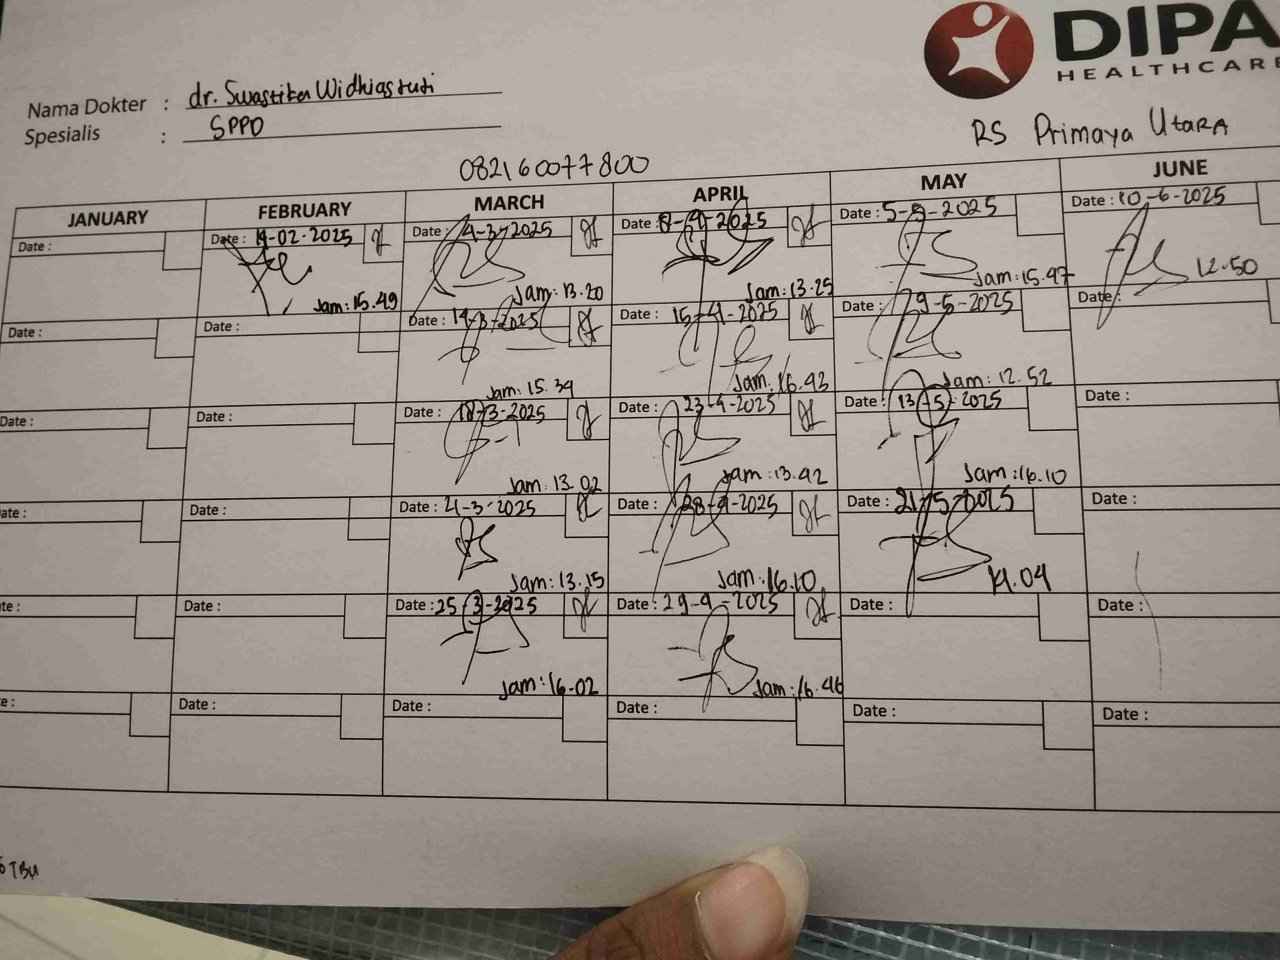 DIPA
HEALTHCARE
Nama Dokter : dr. Swastika Widhiastuti
Spesialis : SPPD
RS Primaya Utara
082160077800
JANUARY FEBRUARY MARCH APRIL MAY JUNE
Date : Date: 14-02-2025 Date: 4-3-2025 Date: 8-4-2025 Date: 5-5-2025 Date: 10-6-2025
Jam: 15.49 Jam: 13.20 Jam: 13.25 Jam: 15.47 12.50
Date : Date : Date: 14-3-2025 Date: 15-4-2025 Date: 9-5-2025 Date:
Jam: 15.34 Jam: 16.43 Jam: 12.52
Date : Date : Date: 18-3-2025 Date: 23-4-2025 Date: 13-5-2025 Date :
Jam: 13.02 Jam: 13.42 Jam: 16.10
ate : Date : Date: 21-3-2025 Date: 28-4-2025 Date: 21-5-2025 Date :
Jam: 13.15 Jam: 16.10 14.04
te : Date : Date: 25-3-2025 Date: 29-4-2025 Date : Date :
Jam: 16.02 Jam: 16.46
e : Date : Date : Date : Date : Date :
TBU